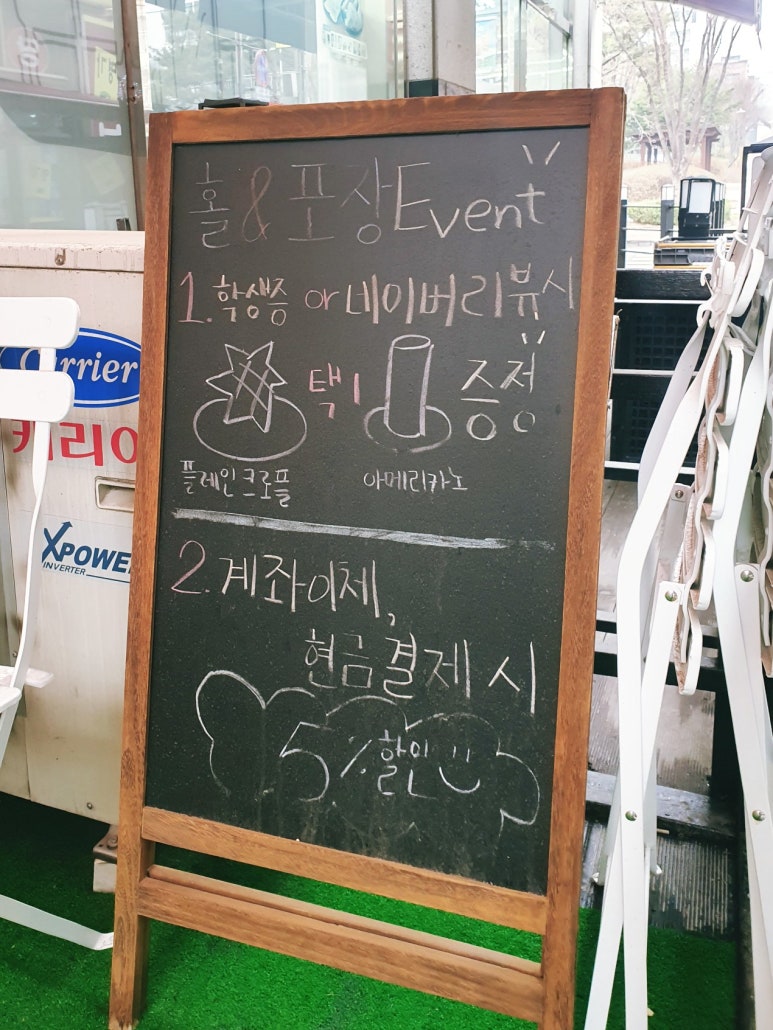 홀 & 포장 Event
1. 학생증 or 네이버리뷰시
택1 증정
플레인크로플 아메리카노
2. 계좌이체,
현금결제 시
5% 할인
Carrier
XPOWE
INVERTER